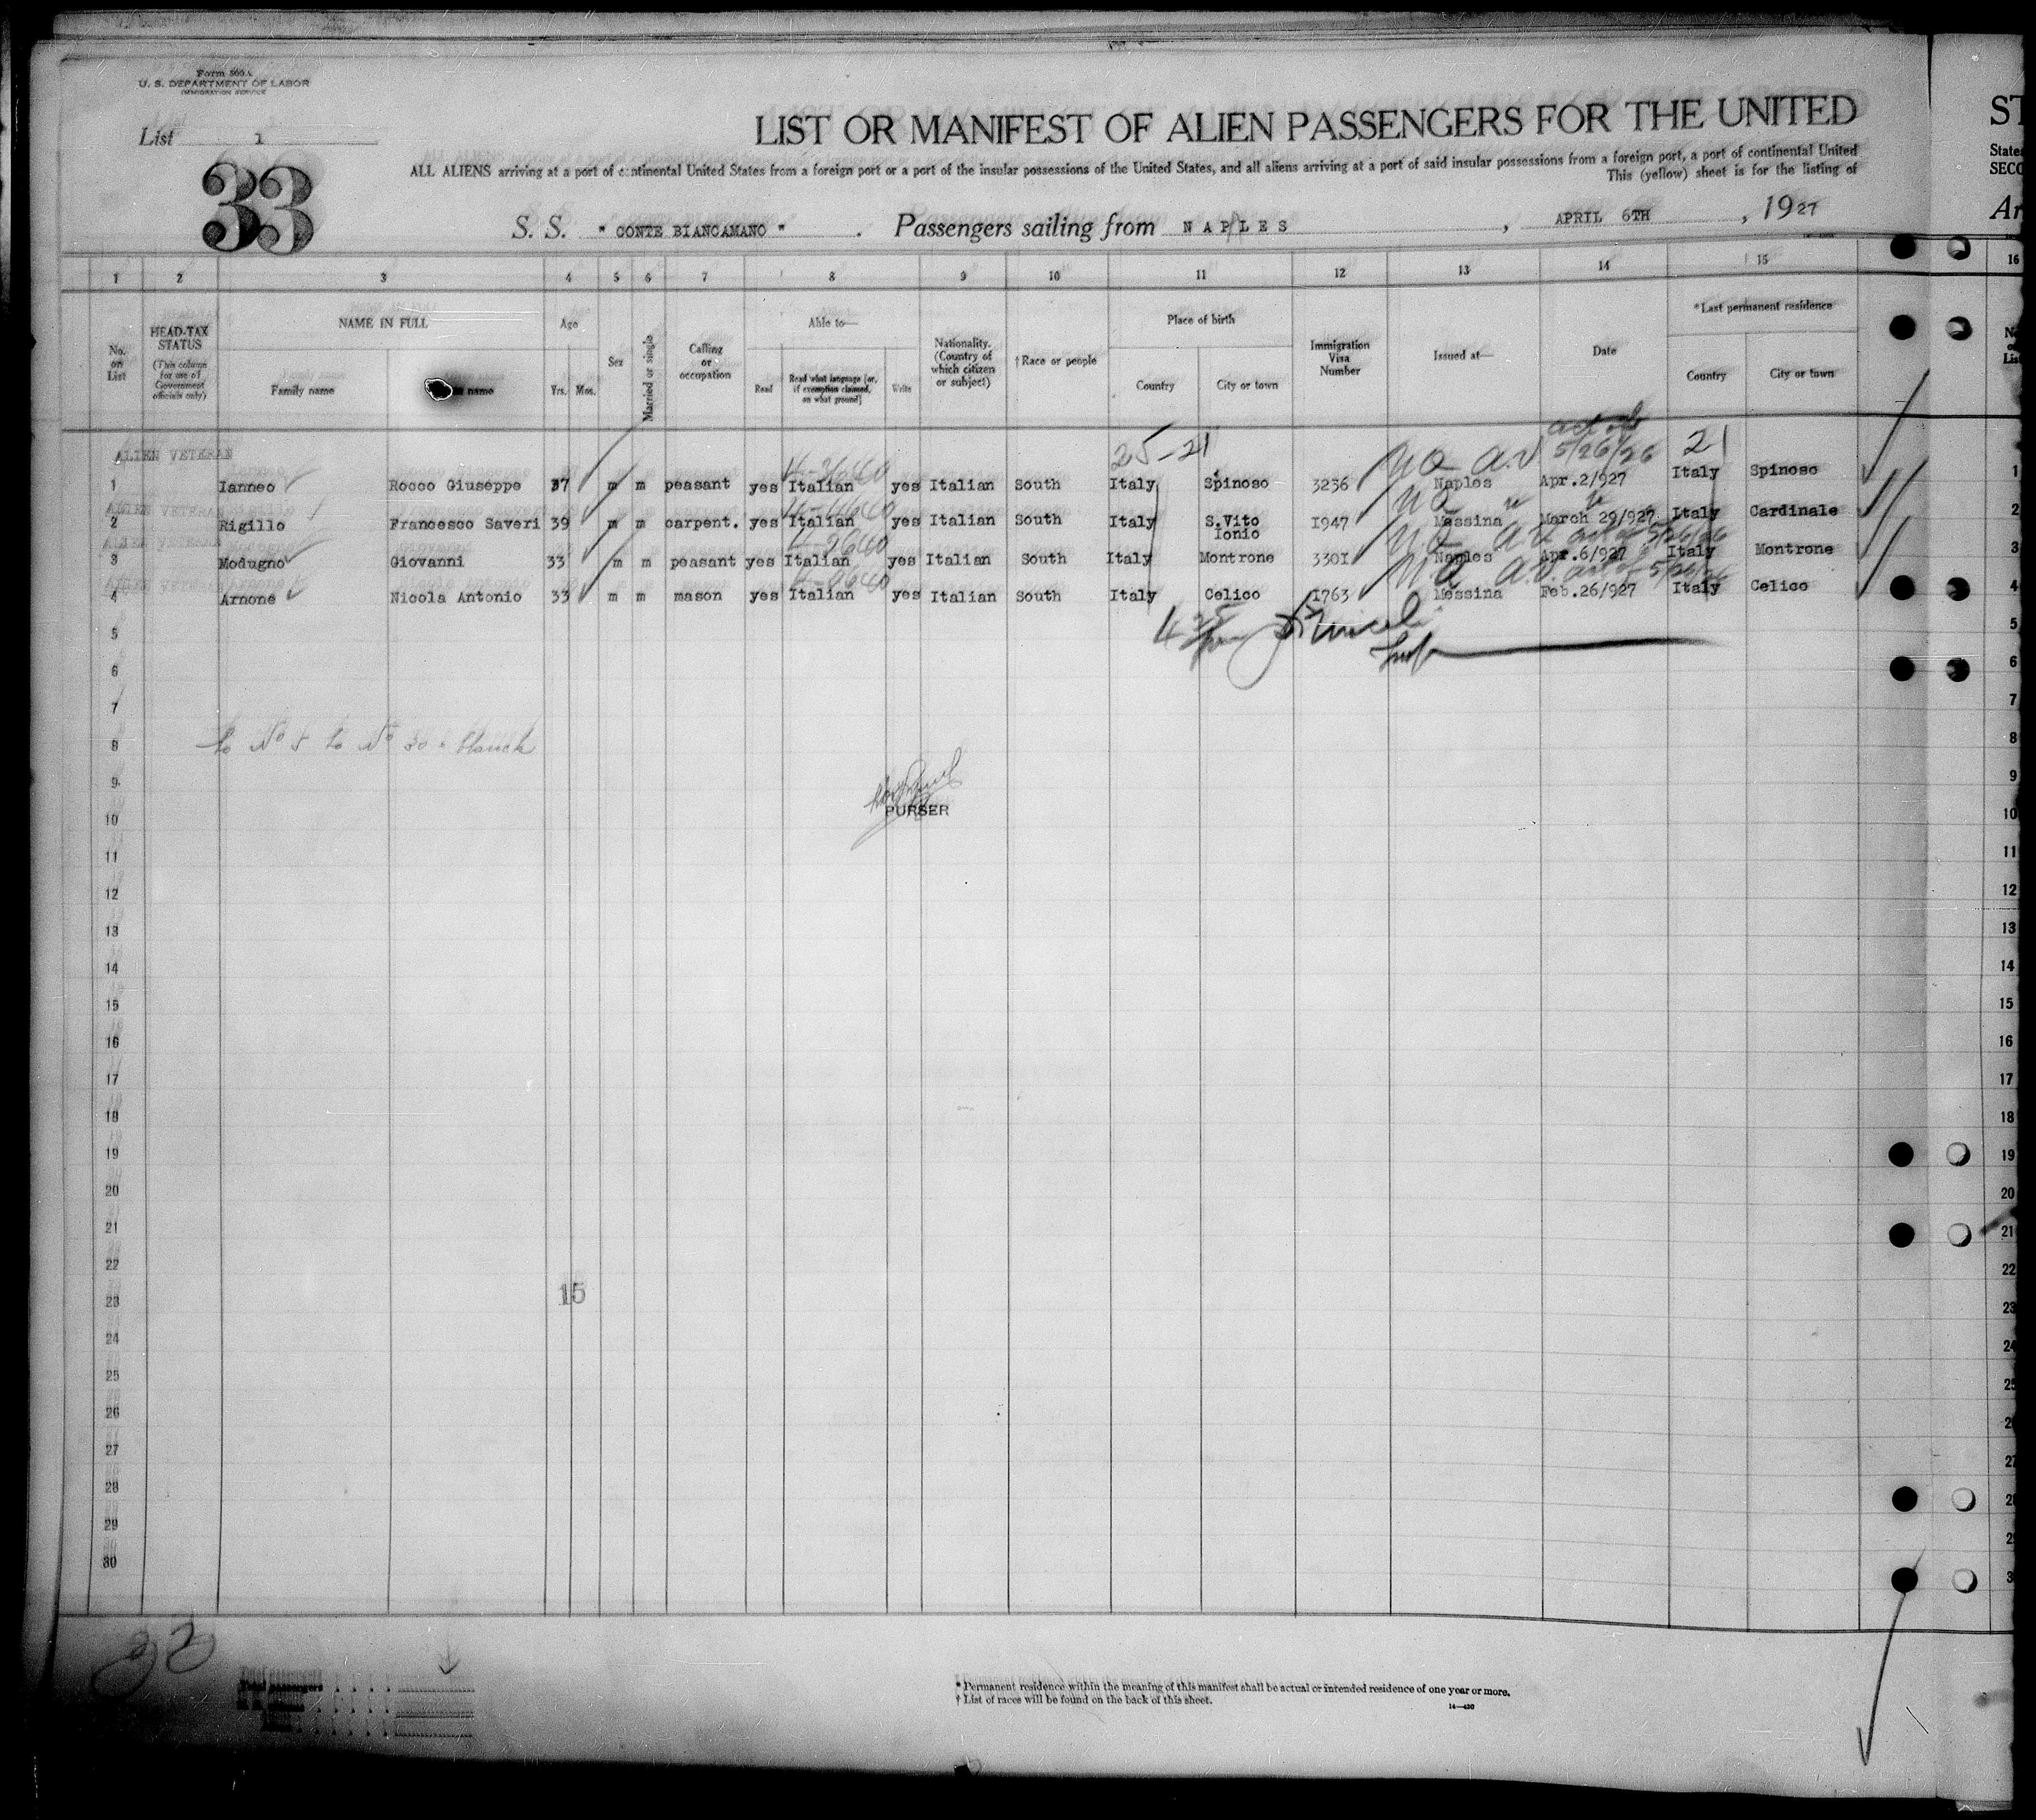 Form 500 A
U. S. DEPARTMENT OF LABOR
IMMIGRATION SERVICE
List 1
33
LIST OR MANIFEST OF ALIEN PASSENGERS FOR THE UNITED
ST
ALL ALIENS arriving at a port of continental United States from a foreign port or a port of the insular possessions of the United States, and all aliens arriving at a port of said insular possessions from a foreign port, a port of continental United
States
This (yellow) sheet is for the listing of
SECO
S. S. " CONTE BIANCAMANO " . Passengers sailing from NAPLES , APRIL 6TH , 1927
Ar
1 2 3 4 5 6 7 8 9 10 11 12 13 14 15 16
No. on List
HEAD-TAX STATUS (This column for use of Government officials only)
NAME IN FULL
Family name name
Age
Yrs. Mos.
Sex
Married or single
Calling or occupation
Able to—
Read Read what language [or, if exemption claimed, on what ground] Write
Nationality. (Country of which citizen or subject)
†Race or people
Place of birth
Country City or town
Immigration Visa Number
Issued at—
Date
*Last permanent residence
Country City or town
ALIEN VETERAN 25-21 no a.v act of 5/26/26 21
1 Ianneo Rocco Giuseppe 37 m m peasant yes Italian yes Italian South Italy Spinoso 3236 Naples Apr.2/927 Italy Spinoso 1
ALIEN VETERAN no " "
2 Rigillo Francesco Saveri 39 m m carpent. yes Italian yes Italian South Italy S.Vito Ionio 1947 Messina March 29/927 Italy Cardinale 2
ALIEN VETERAN 4-2640 no a.v. act of 5/26/26
3 Modugno Giovanni 33 m m peasant yes Italian yes Italian South Italy Montrone 3301 Naples Apr.6/927 Italy Montrone 3
ALIEN VETERAN 4-2640 no a.v. act of 5/26/26
4 Arnone Nicola Antonio 33 m m mason yes Italian yes Italian South Italy Celico 1763 Messina Feb.26/927 Italy Celico 4
5 5
6 6
7 7
8 No 5 to No 30 blanch 8
9 9
PURSER
10 10
11 11
12 12
13 13
14 14
15 15
16 16
17 17
18 18
19 19
20 20
21 21
22 22
15
23 23
24 24
25 25
26 2
27 27
28 2
29 2
30 3
33
Total passengers
* Permanent residence within the meaning of this manifest shall be actual or intended residence of one year or more.
† List of races will be found on the back of this sheet.
14—430